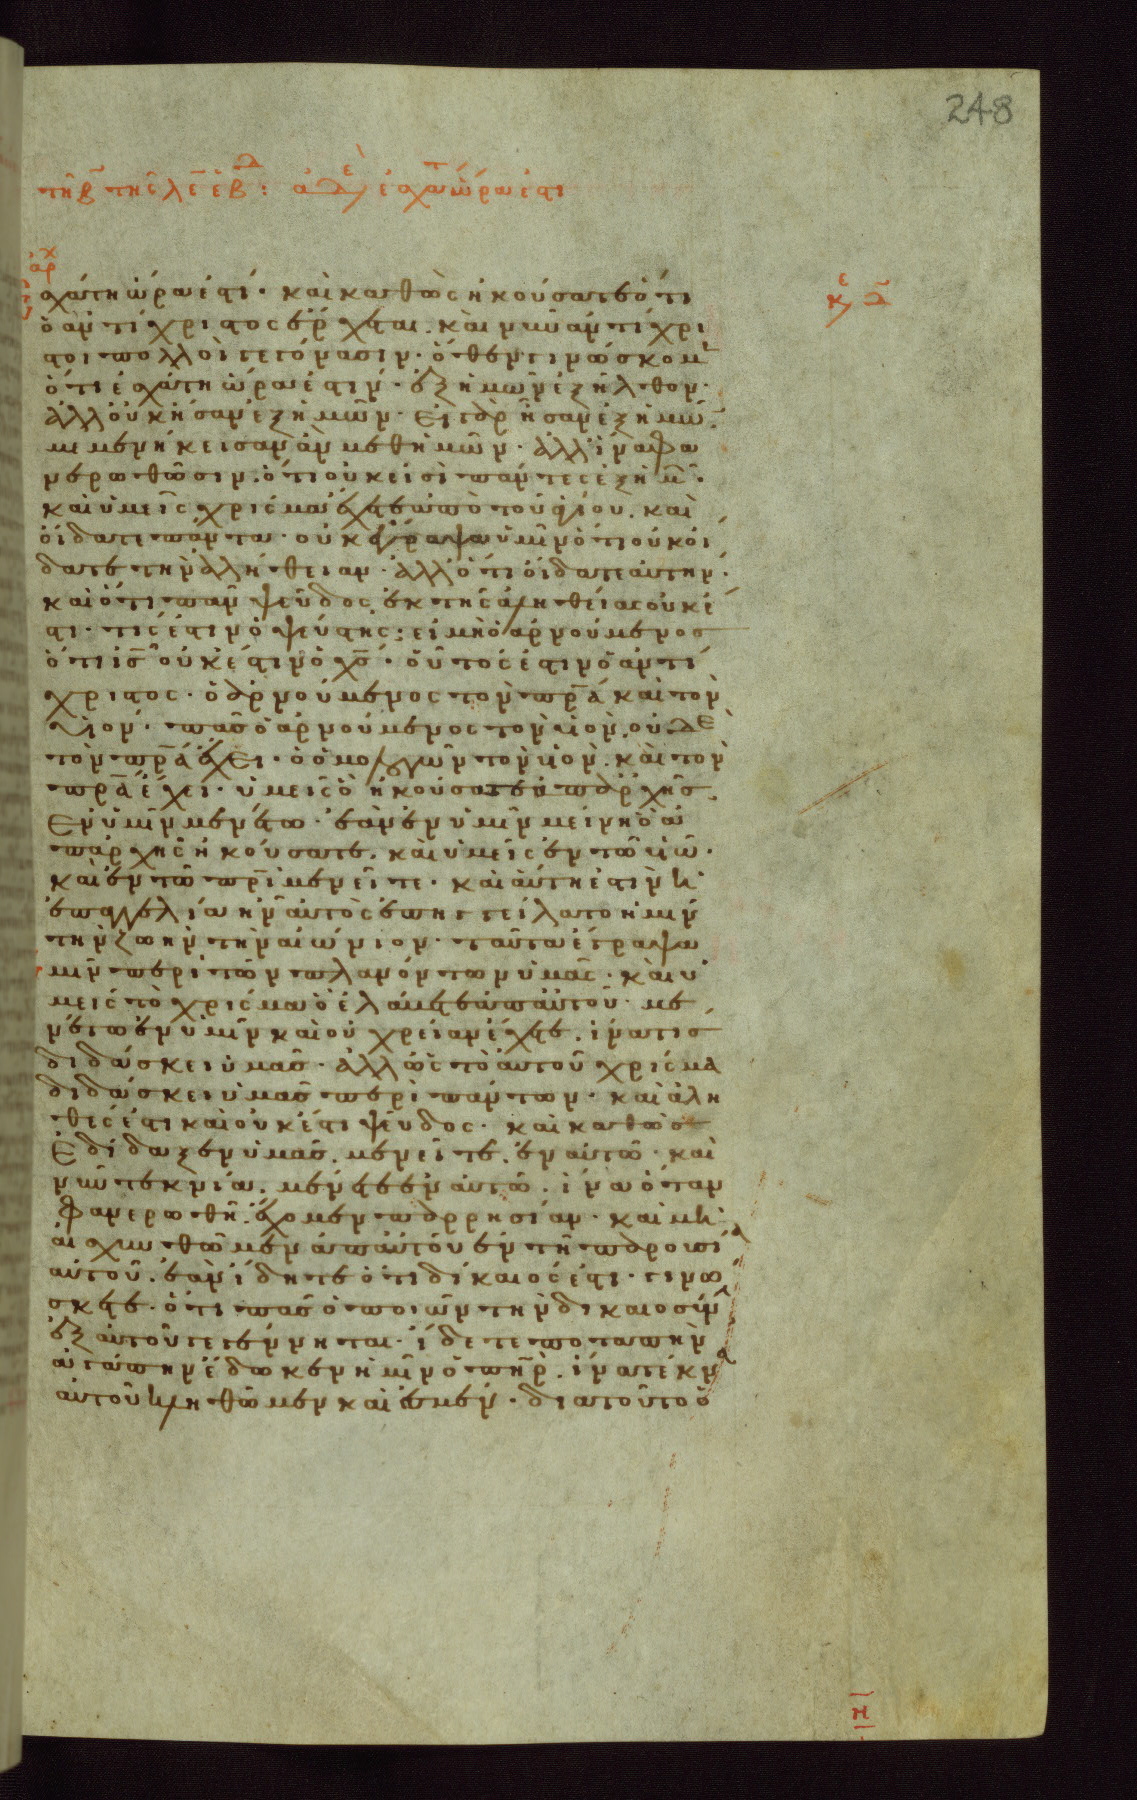 248
τῇ β̄ τῆς λε ἑβδ: ἀδελφοὶ ἐσχάτη ὥρα ἐστί
ἀρχ
σχάτη ὥρα ἐστί· καὶ καθὼς ἠκούσατε ὅτι
ὁ ἀντίχριστος ἔρχεται. καὶ νῦν ἀντίχρι
στοι πολλοὶ γεγόνασιν· ὅθεν γινώσκομ
ὅτι ἐσχάτη ὥρα ἐστίν· ἐξ ἡμῶν ἐξῆλθον·
ἀλλ οὐκ ἦσαν ἐξ ἡμῶν· εἰ γὰρ ἦσαν ἐξ ἡμῶ
μεμενήκεισαν ἂν μεθ ἡμῶν· ἀλλ ἵνα φα
νερωθῶσιν. ὅτι οὐκ εἰσὶ πάντες ἐξ ἡμ·
καὶ ὑμεῖς χρίσμα ἔχετε ἀπὸ τοῦ ἁγίου. καὶ
οἴδατε πάντα· οὐκ ἔγραψα ὑμῖν ὅτι οὐκ οἴ
δατε τὴν ἀλήθειαν· ἀλλ ὅτι οἴδατε αὐτήν·
καὶ ὅτι πᾶν ψεῦδος ἐκ τῆς ἀληθείας οὐκ ἔ
στι· τίς ἐστιν ὁ ψεύστης: εἰ μὴ ὁ ἀρνούμενος
ὅτι ις οὐκ ἔστιν ὁ χς· οὗτός ἐστιν ὁ ἀντί
χριστος· ὁ ἀρνούμενος τὸν πρα καὶ τὸν
υἱόν· πᾶς ὁ ἀρνούμενος τὸν υἱὸν. οὐδὲ
τὸν πρα ἔχει· ὁ ὁμολογῶν τὸν υἱὸν. καὶ τὸν
πρα ἔχει· ὑμεῖς ὃ ἠκούσατε ἀπ ἀρχῆς
ἐν ὑμῖν μενέτω· ἐὰν ἐν ὑμῖν μείνῃ ὃ ἀ
π ἀρχῆς ἠκούσατε. καὶ ὑμεῖς ἐν τῷ υἱῷ·
καὶ ἐν τῷ πρι μενεῖτε· καὶ αὕτη ἐστὶν ἡ
ἐπαγγελία ἣν αὐτὸς ἐπηγγείλατο ἡμῖν
τὴν ζωὴν τὴν αἰώνιον· ταῦτα ἔγραψα
μῖν περὶ τῶν πλανόντων ὑμᾶς· καὶ ὑ
μεῖς τὸ χρίσμα ὃ ἐλάμετε ἀπ αὐτοῦ· με
νέτω ἐν ὑμῖν καὶ οὐ χρείαν ἔχετε. ἵνα τις
διδάσκει ὑμᾶς· ἀλλ ὡς τὸ αὐτοῦ χρίσμα
διδάσκει ὑμᾶς περὶ πάντων· καὶ ἀλη
θές ἐστι καὶ οὐκ ἔστι ψεῦδος· καὶ καθὼς
ἐδίδαξεν ὑμᾶς. μενεῖτε. ἐν αὐτῷ· καὶ
νῦν τεκνία. μένετε ἐν αὐτῷ. ἵνα ὅταν
φανερωθῇ. ἔχομεν παρρησίαν· καὶ μὴ
αἰσχυνθῶμεν ἀπ αὐτοῦ ἐν τῇ παρουσία
αὐτοῦ. ἐὰν ἴδητε ὅτι δίκαιός ἐστι· γινώ
σκετε· ὅτι πᾶς ὁ ποιῶν τὴν δικαιοσύν
ἐξ αὐτοῦ γεγέννηται· ἴδετε ποταπὴν
ἀγάπην ἔδωκεν ἡμῖν ὁ πηρ. ἵνα τέκνα
αὐτοῦ κληθῶμεν καὶ ἐσμέν· διατοῦτο ὁ
Η